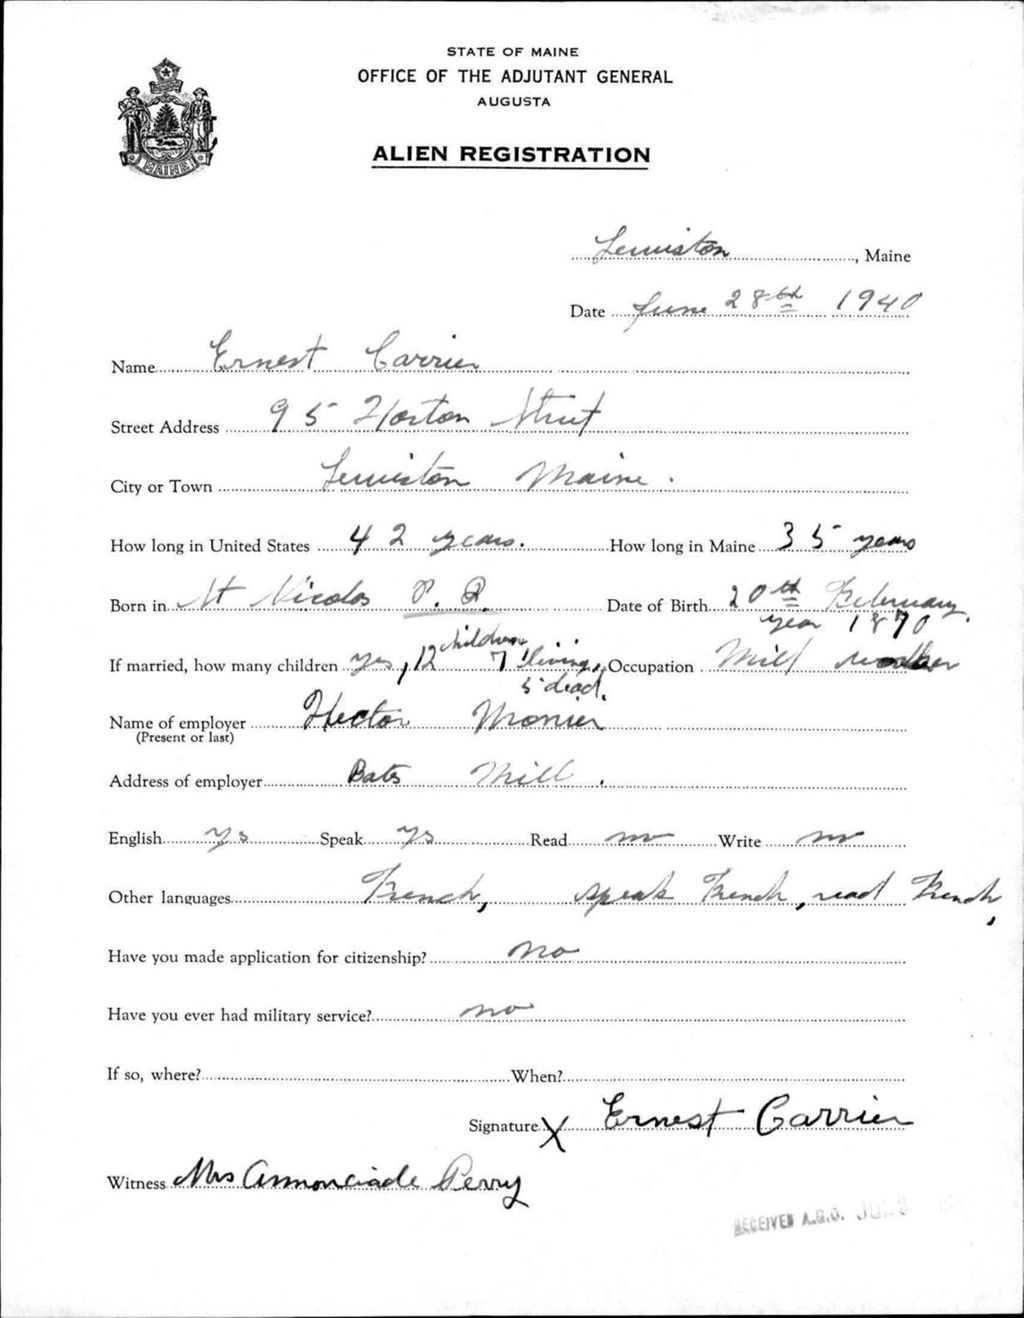 STATE OF MAINE
OFFICE OF THE ADJUTANT GENERAL
AUGUSTA
ALIEN REGISTRATION
MAINE
Lewiston, Maine
Date June 28th 1940
Name Ernest Carrier
Street Address 95 Horton Street
City or Town Lewiston Maine.
How long in United States 42 years. How long in Maine 35 years
Born in St Nicolas P. Q. Date of Birth 20th February,
year 1870
If married, how many children yes, 12 children 7 living, 5 dead. Occupation Mill worker
Name of employer Hector Monier
(Present or last)
Address of employer Bates Mill.
English Yes Speak Yes Read no Write no
Other languages French, speak French, read French,
Have you made application for citizenship? No
Have you ever had military service? no
If so, where? When?
Signature X Ernest Carrier
Witness Mrs Annonciade Perry
RECEIVED A.G.O. JUL 2